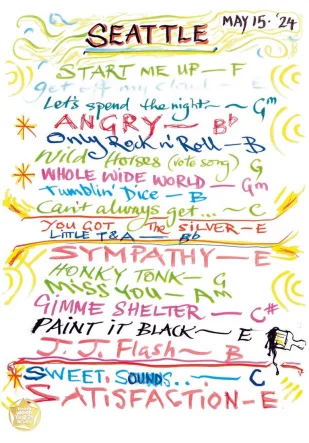 SEATTLE
MAY 15. '24
START ME UP — F
get off my cloud — E
Let's spend the night — ~ Gm
ANGRY — Bb
Only Rock n' Roll — B
Wild Horses (vote song) G
WHOLE WIDE WORLD — Gm
Tumblin' Dice — B
Can't always get... ~ C
YOU GOT The SILVER — E
LITTLE T&A — Bb
SYMPATHY — E
HONKY TONK — G
MISS YOU — Am
GIMME SHELTER — C#
PAINT IT BLACK — E
J.J. Flash — B
SWEET SOUNDS.. — C
SATISFACTION — E